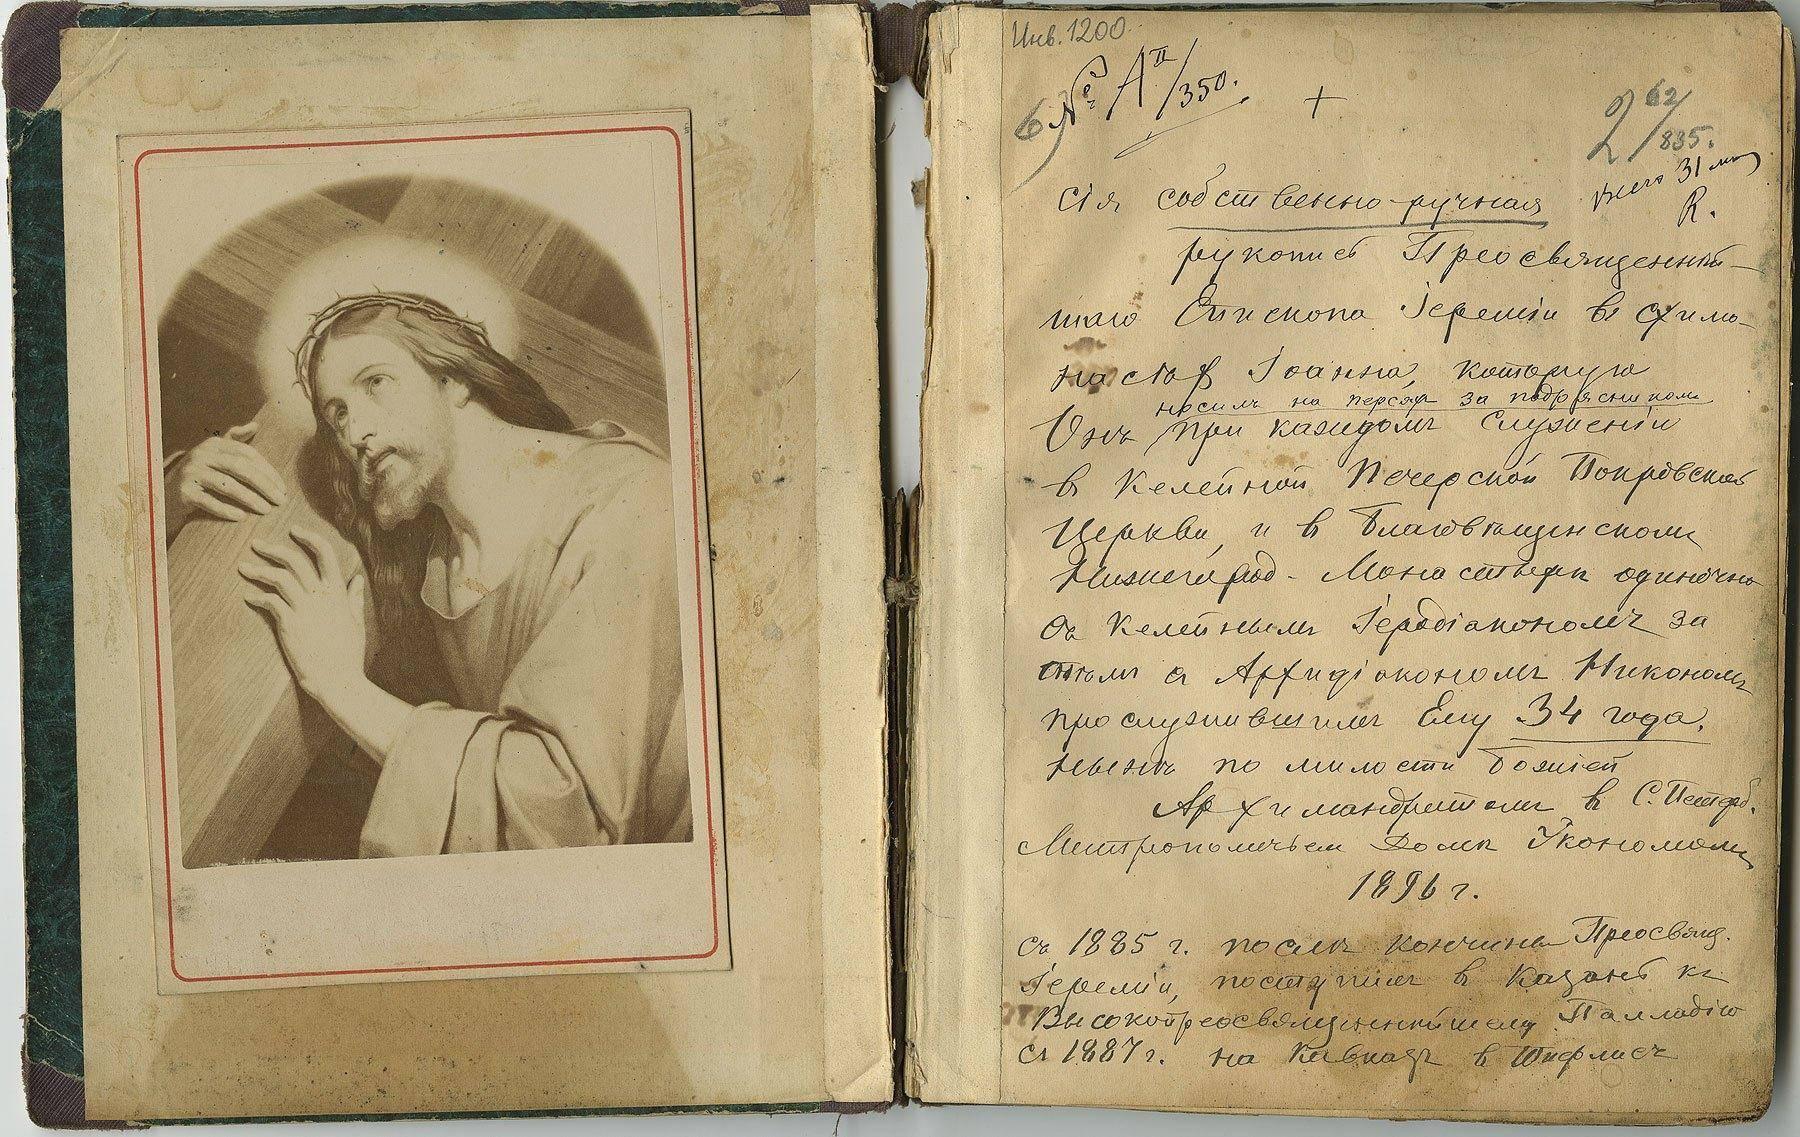 Инв. 1200.
6) № A II/350.
+
2 62/835.
Всего 31 л.
R.
Сія собственно-ручная
рукопись Преосвященнѣй-
шаго Епископа Іереміи въ схимо-
насѣхъ Іоанна, которую
носилъ на персяхъ за подрясникомъ
Онъ при каждомъ Служеніи
въ Келейной Печерской Покровской
Церкви, и въ Благовѣщенскомъ
Нижегород. Монастырѣ одиночно
съ Келейнымъ Іеродіакономъ за
тѣмъ съ Архидіакономъ Никономъ
прослужившимъ Ему 34 года.
Нынѣ по милости Божіей
Архимандритомъ въ С. Петерб.
Митрополичьемъ Домѣ Экономомъ
1896 г.
Съ 1885 г. послѣ кончины Преосвящ.
Іереміи, поступилъ въ Казань къ
Высокопреосвященнѣйшему Палладію
съ 1887 г. на Кавказъ въ Тифлисъ